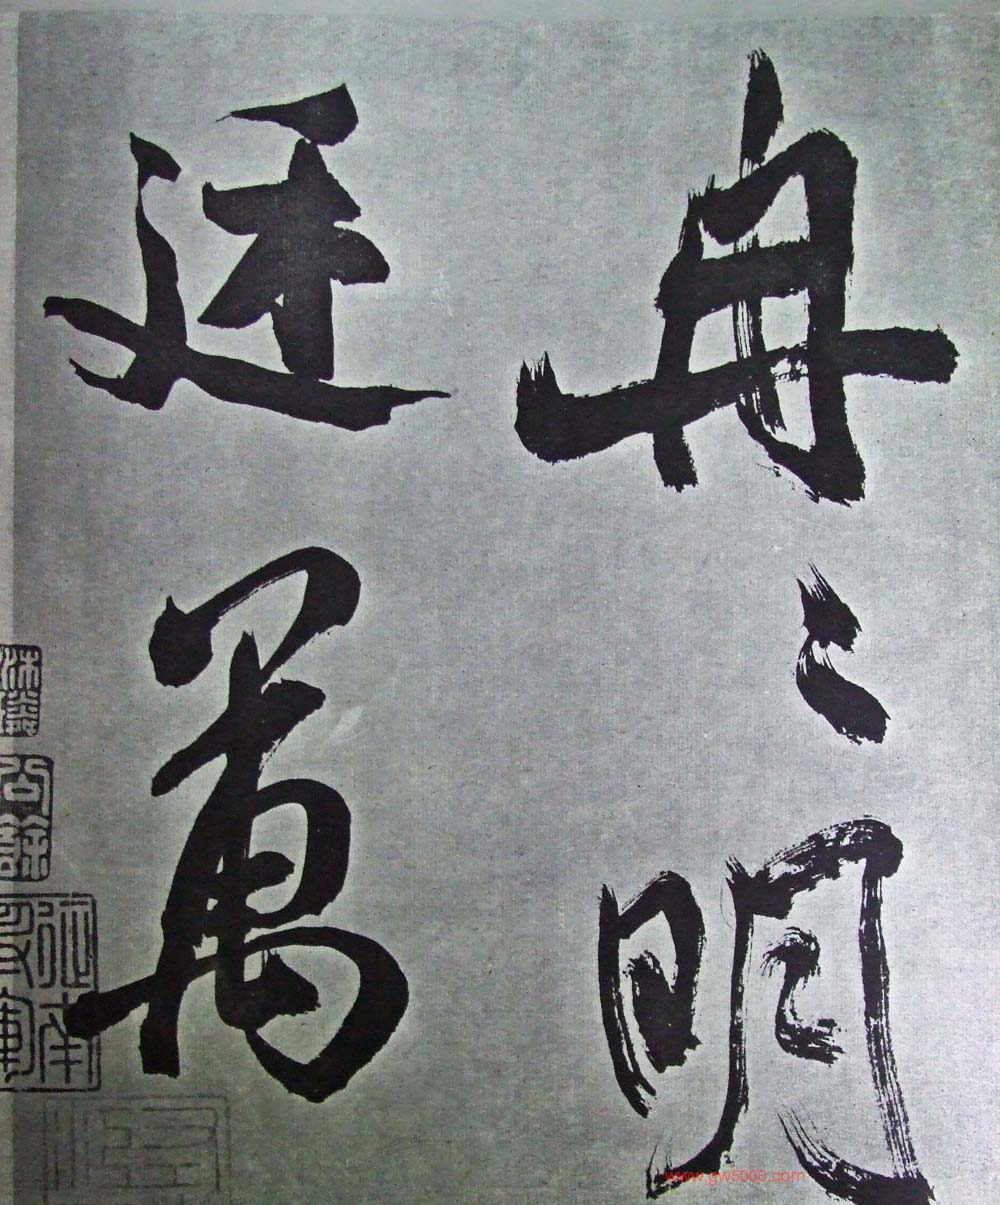 冉〻明
廷萬
www.gw5000.com